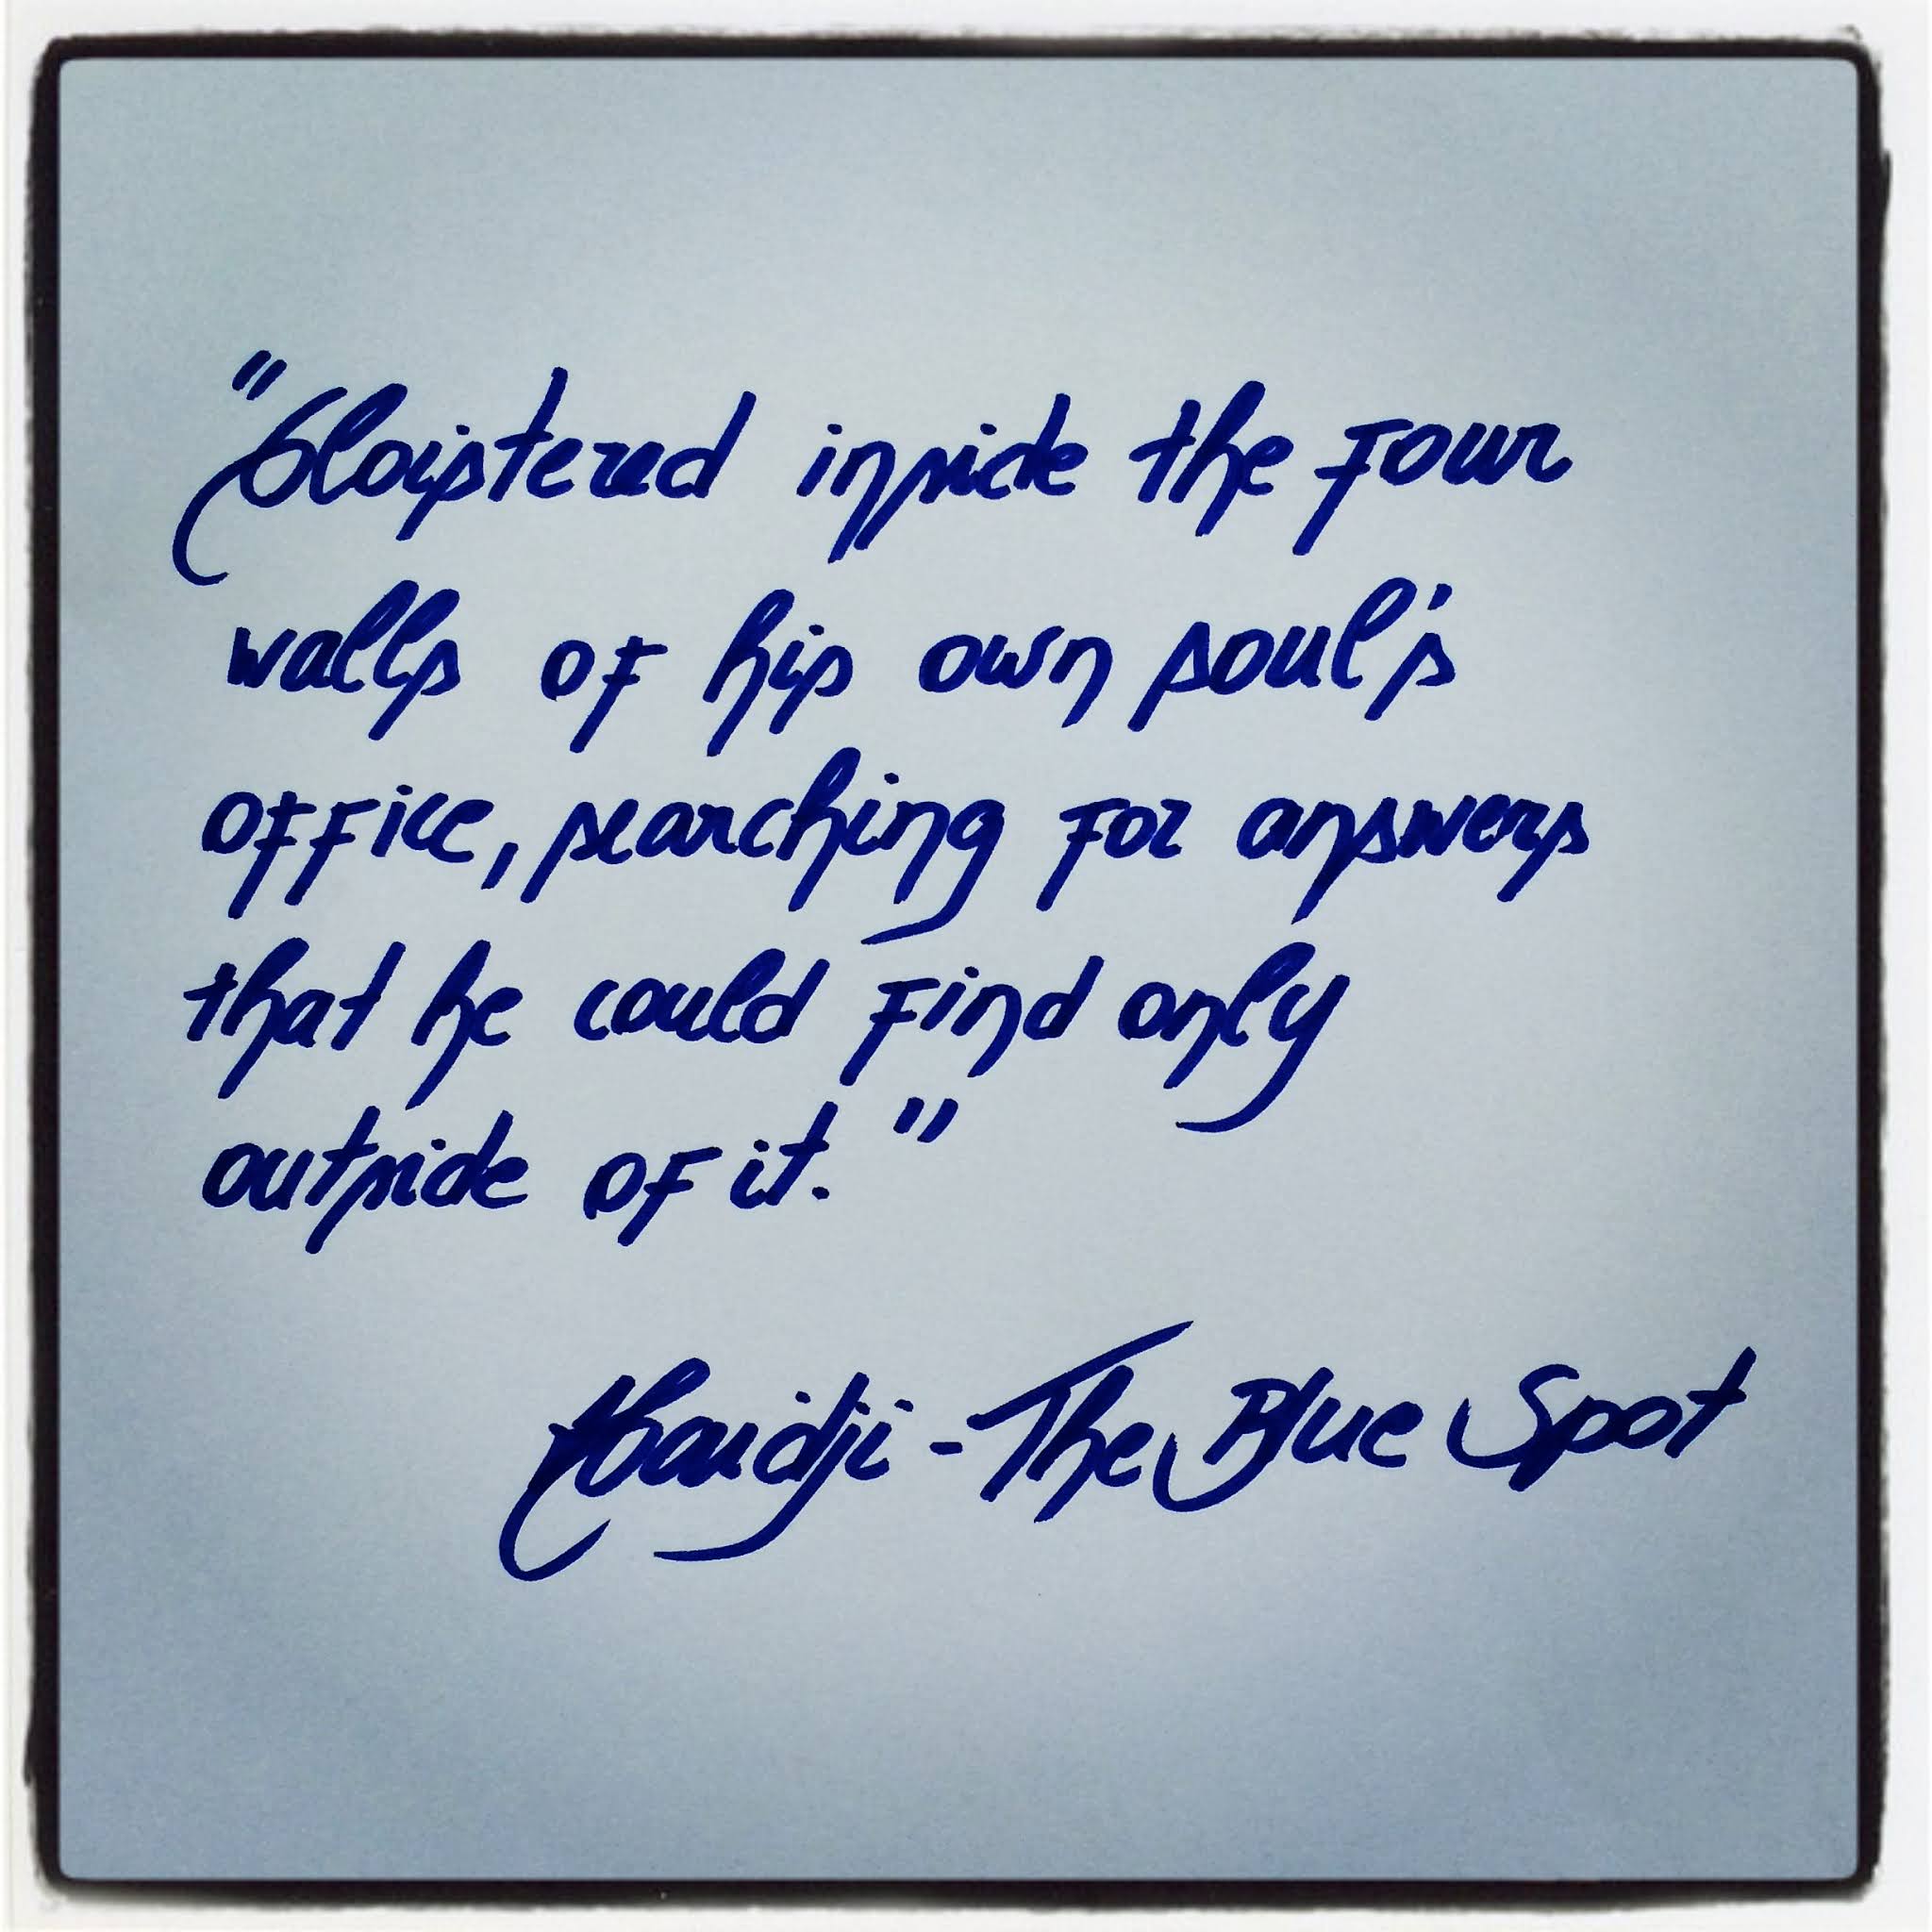 "Cloistered inside the four
walls of his own soul's
office, searching for answers
that he could find only
outside of it."
- The Blue Spot